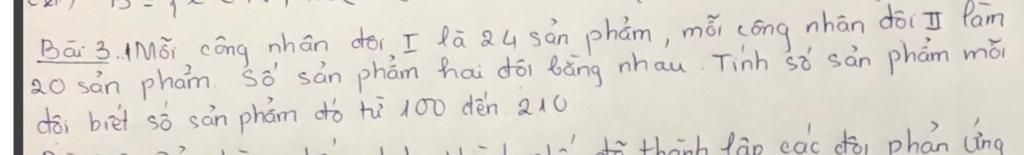 Bài 3. Mỗi công nhân đội I là 24 sản phẩm, mỗi công nhân đội II làm
20 sản phẩm. Số sản phẩm hai đội bằng nhau. Tính số sản phẩm mỗi
đội biết số sản phẩm đó từ 100 đến 210
thành lập các đội phản ứng